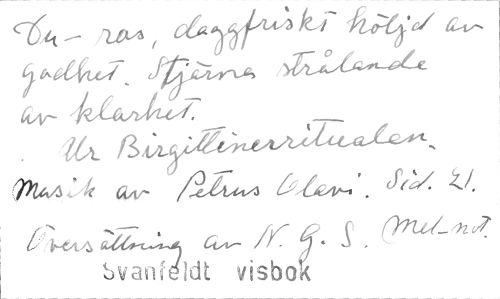 Du – ros, daggfriskt höljd av
godhet. Stjärna strålande
av klarhet.
Ur Birgittinerritualen.
Musik av Petrus Olavi. Sid. 21.
Översättning av N. G. S. Mel-not.
Svanfeldt visbok